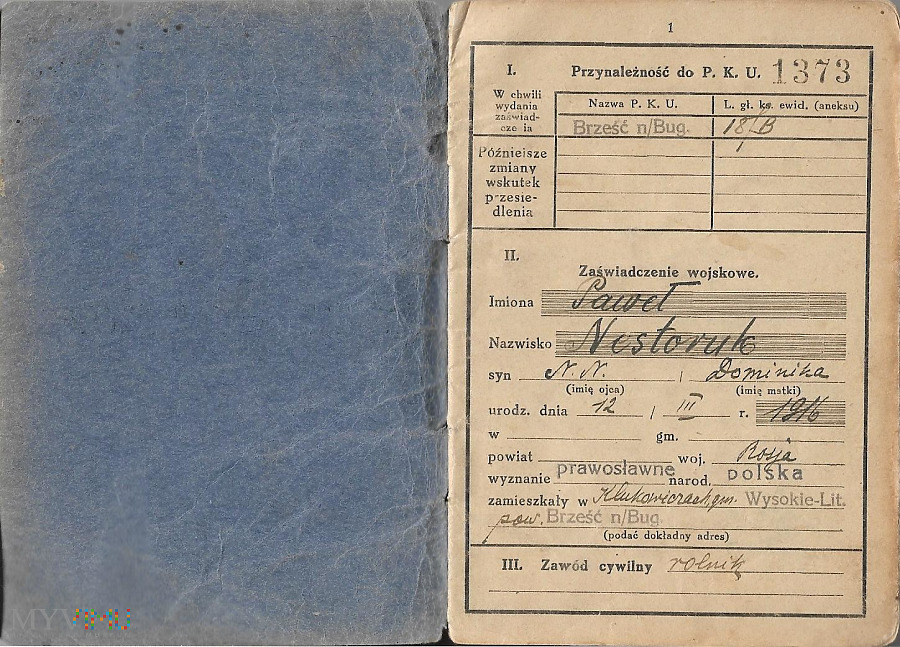 1
I. Przynależność do P. K. U. 1373
W chwili
wydania
zaświad-
cze ia
Nazwa P. K. U. L. gł. ks. ewid. (aneksu)
Brześć n/Bug. 18/B
Późniejsze
zmiany
wskutek
przesie-
dlenia
II.
Zaświadczenie wojskowe.
Imiona Paweł
Nazwisko Nestoruk
syn N. N. i Dominika
(imię ojca) (imię matki)
urodz. dnia 12 / III r. 1916
w gm.
powiat woj. Rosja
wyznanie prawosławne narod. polska
zamieszkały w Klukowiczach gm. Wysokie-Lit.
pow. Brześć n/Bug.
(podać dokładny adres)
III. Zawód cywilny rolnik